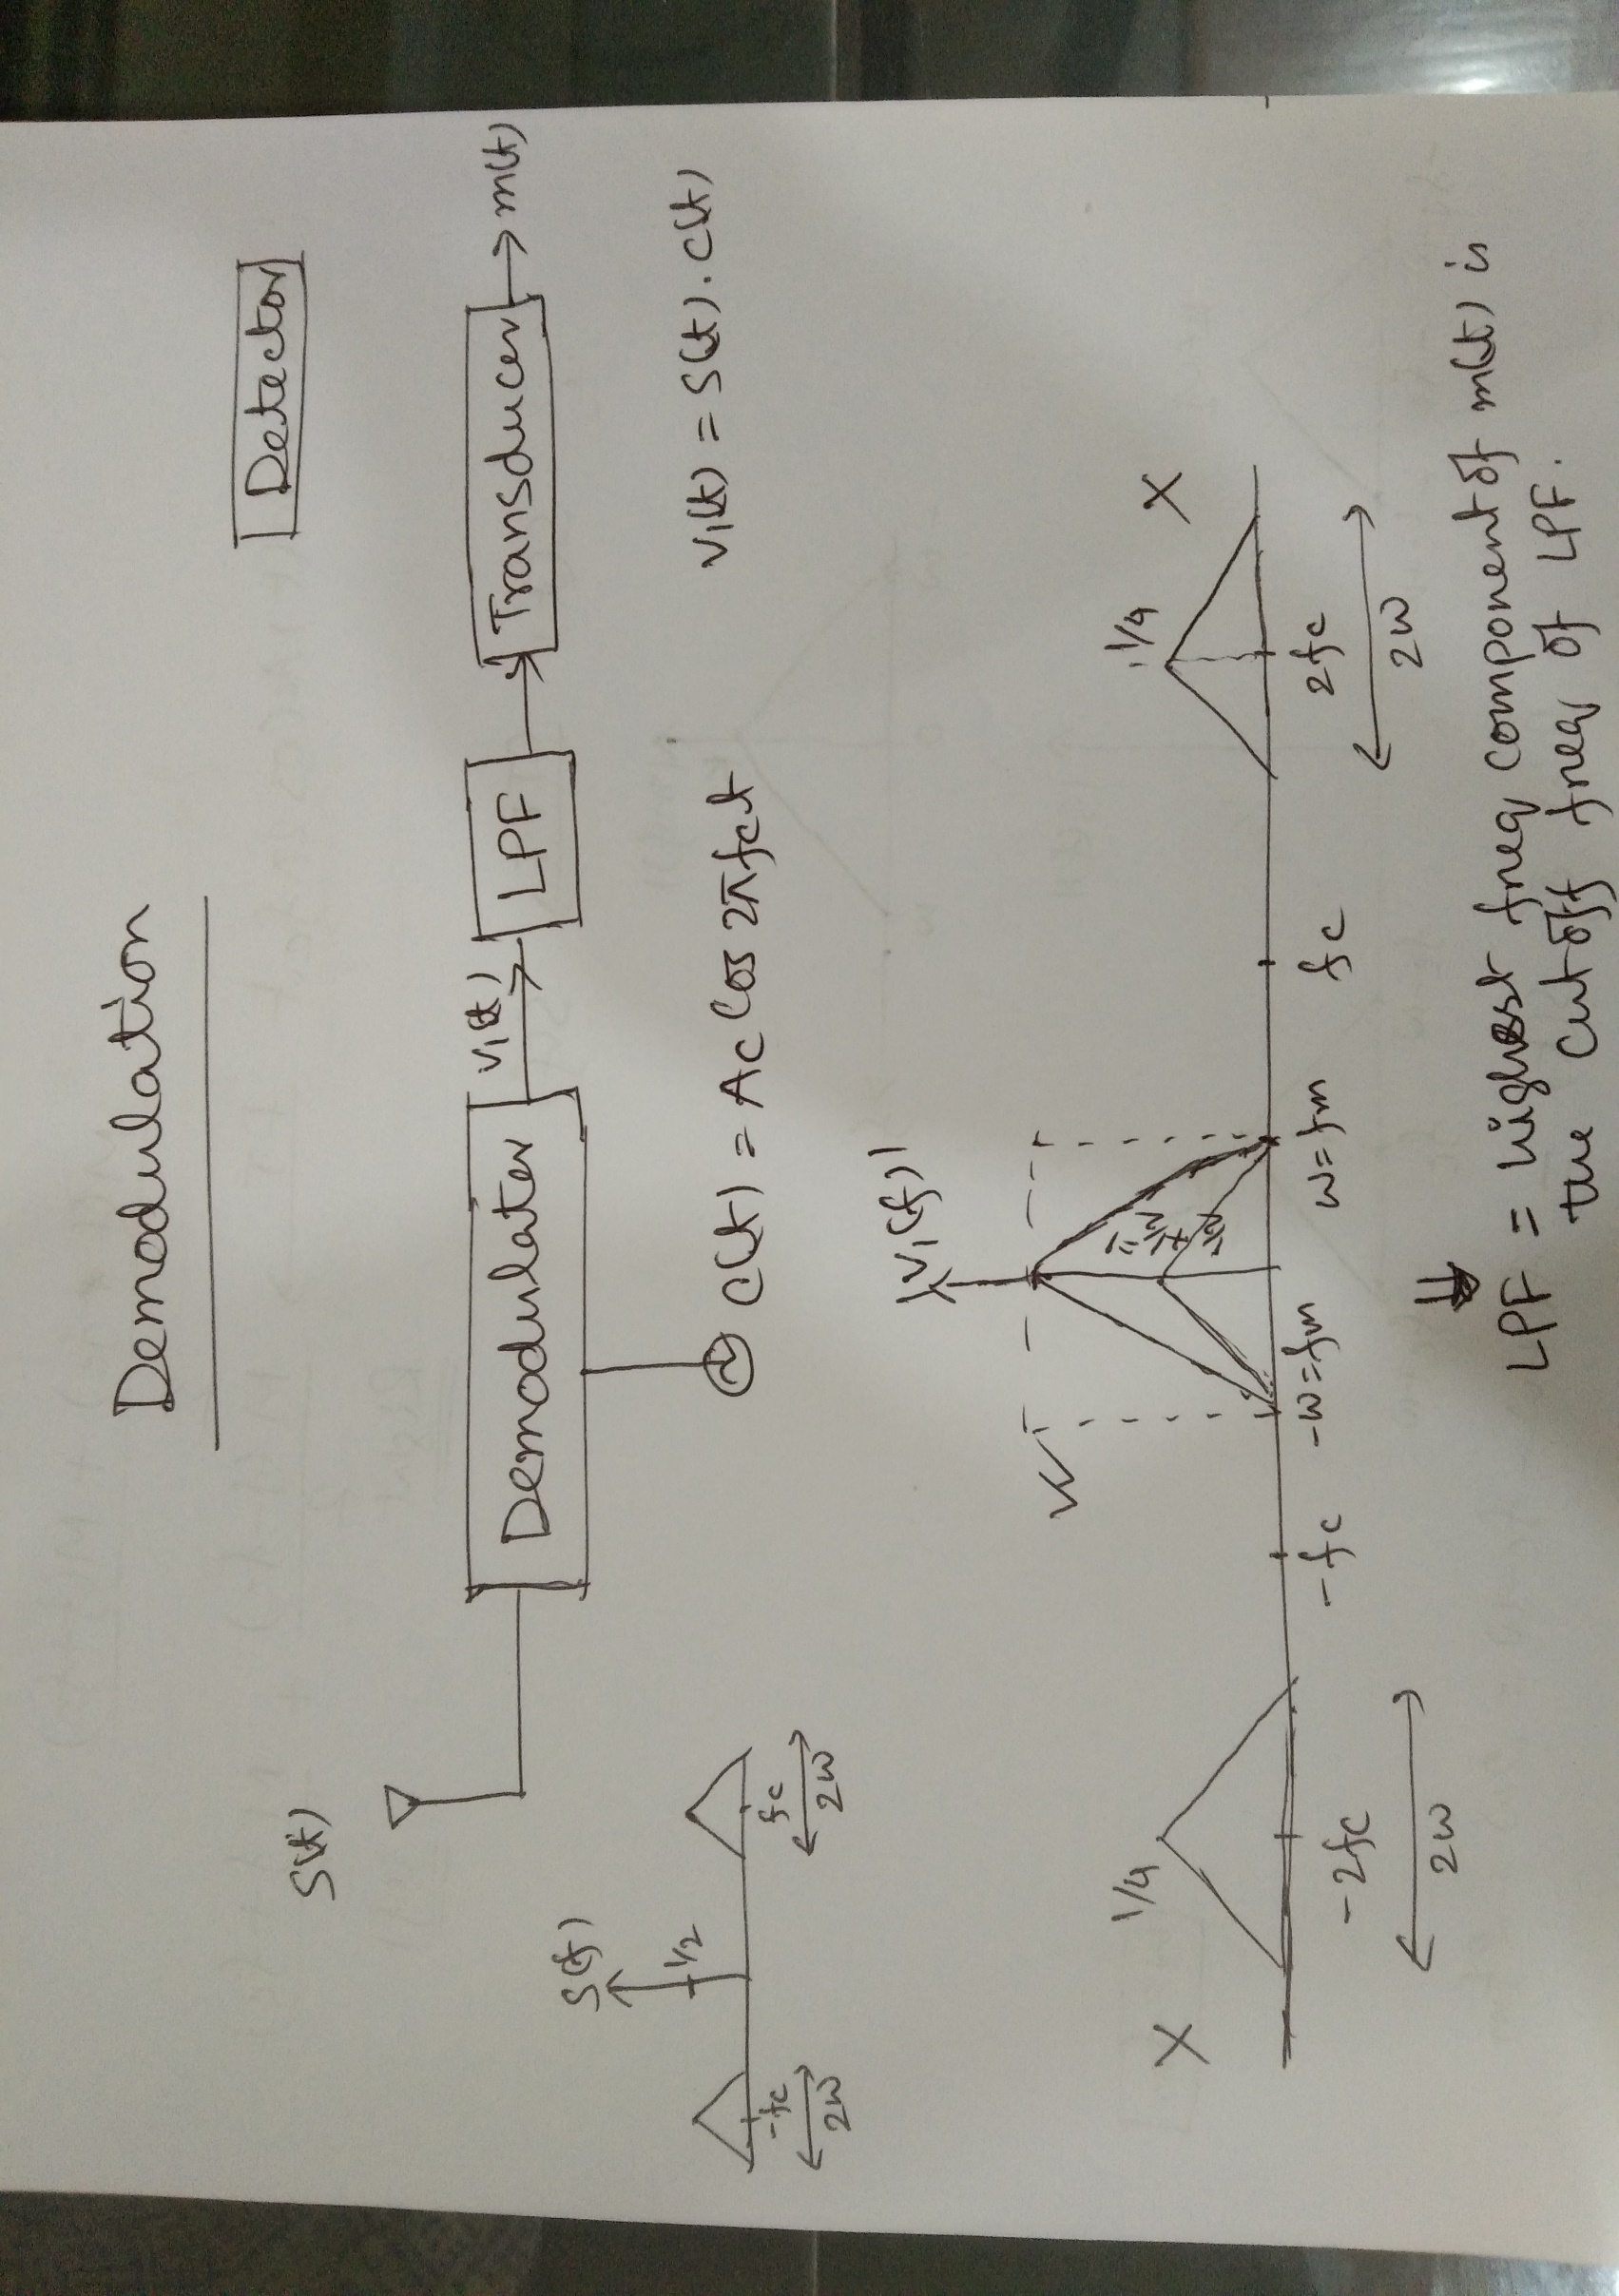 Demodulation
Detector
S(t)
Demodulater
V₁(t)
LPF
Transducer
m(t)
C(t) = Ac Cos 2πfct
V₁(t) = S(t) . C(t)
S(f)
1/2
-fc
fc
2W
2W
|V₁(f)|
1/4
1/4
X
X
-2fc
-fc
-W=fm
W=fm
fc
2fc
2W
2W
LPF = highest freq component of m(t) is
the cutoff freq of LPF.